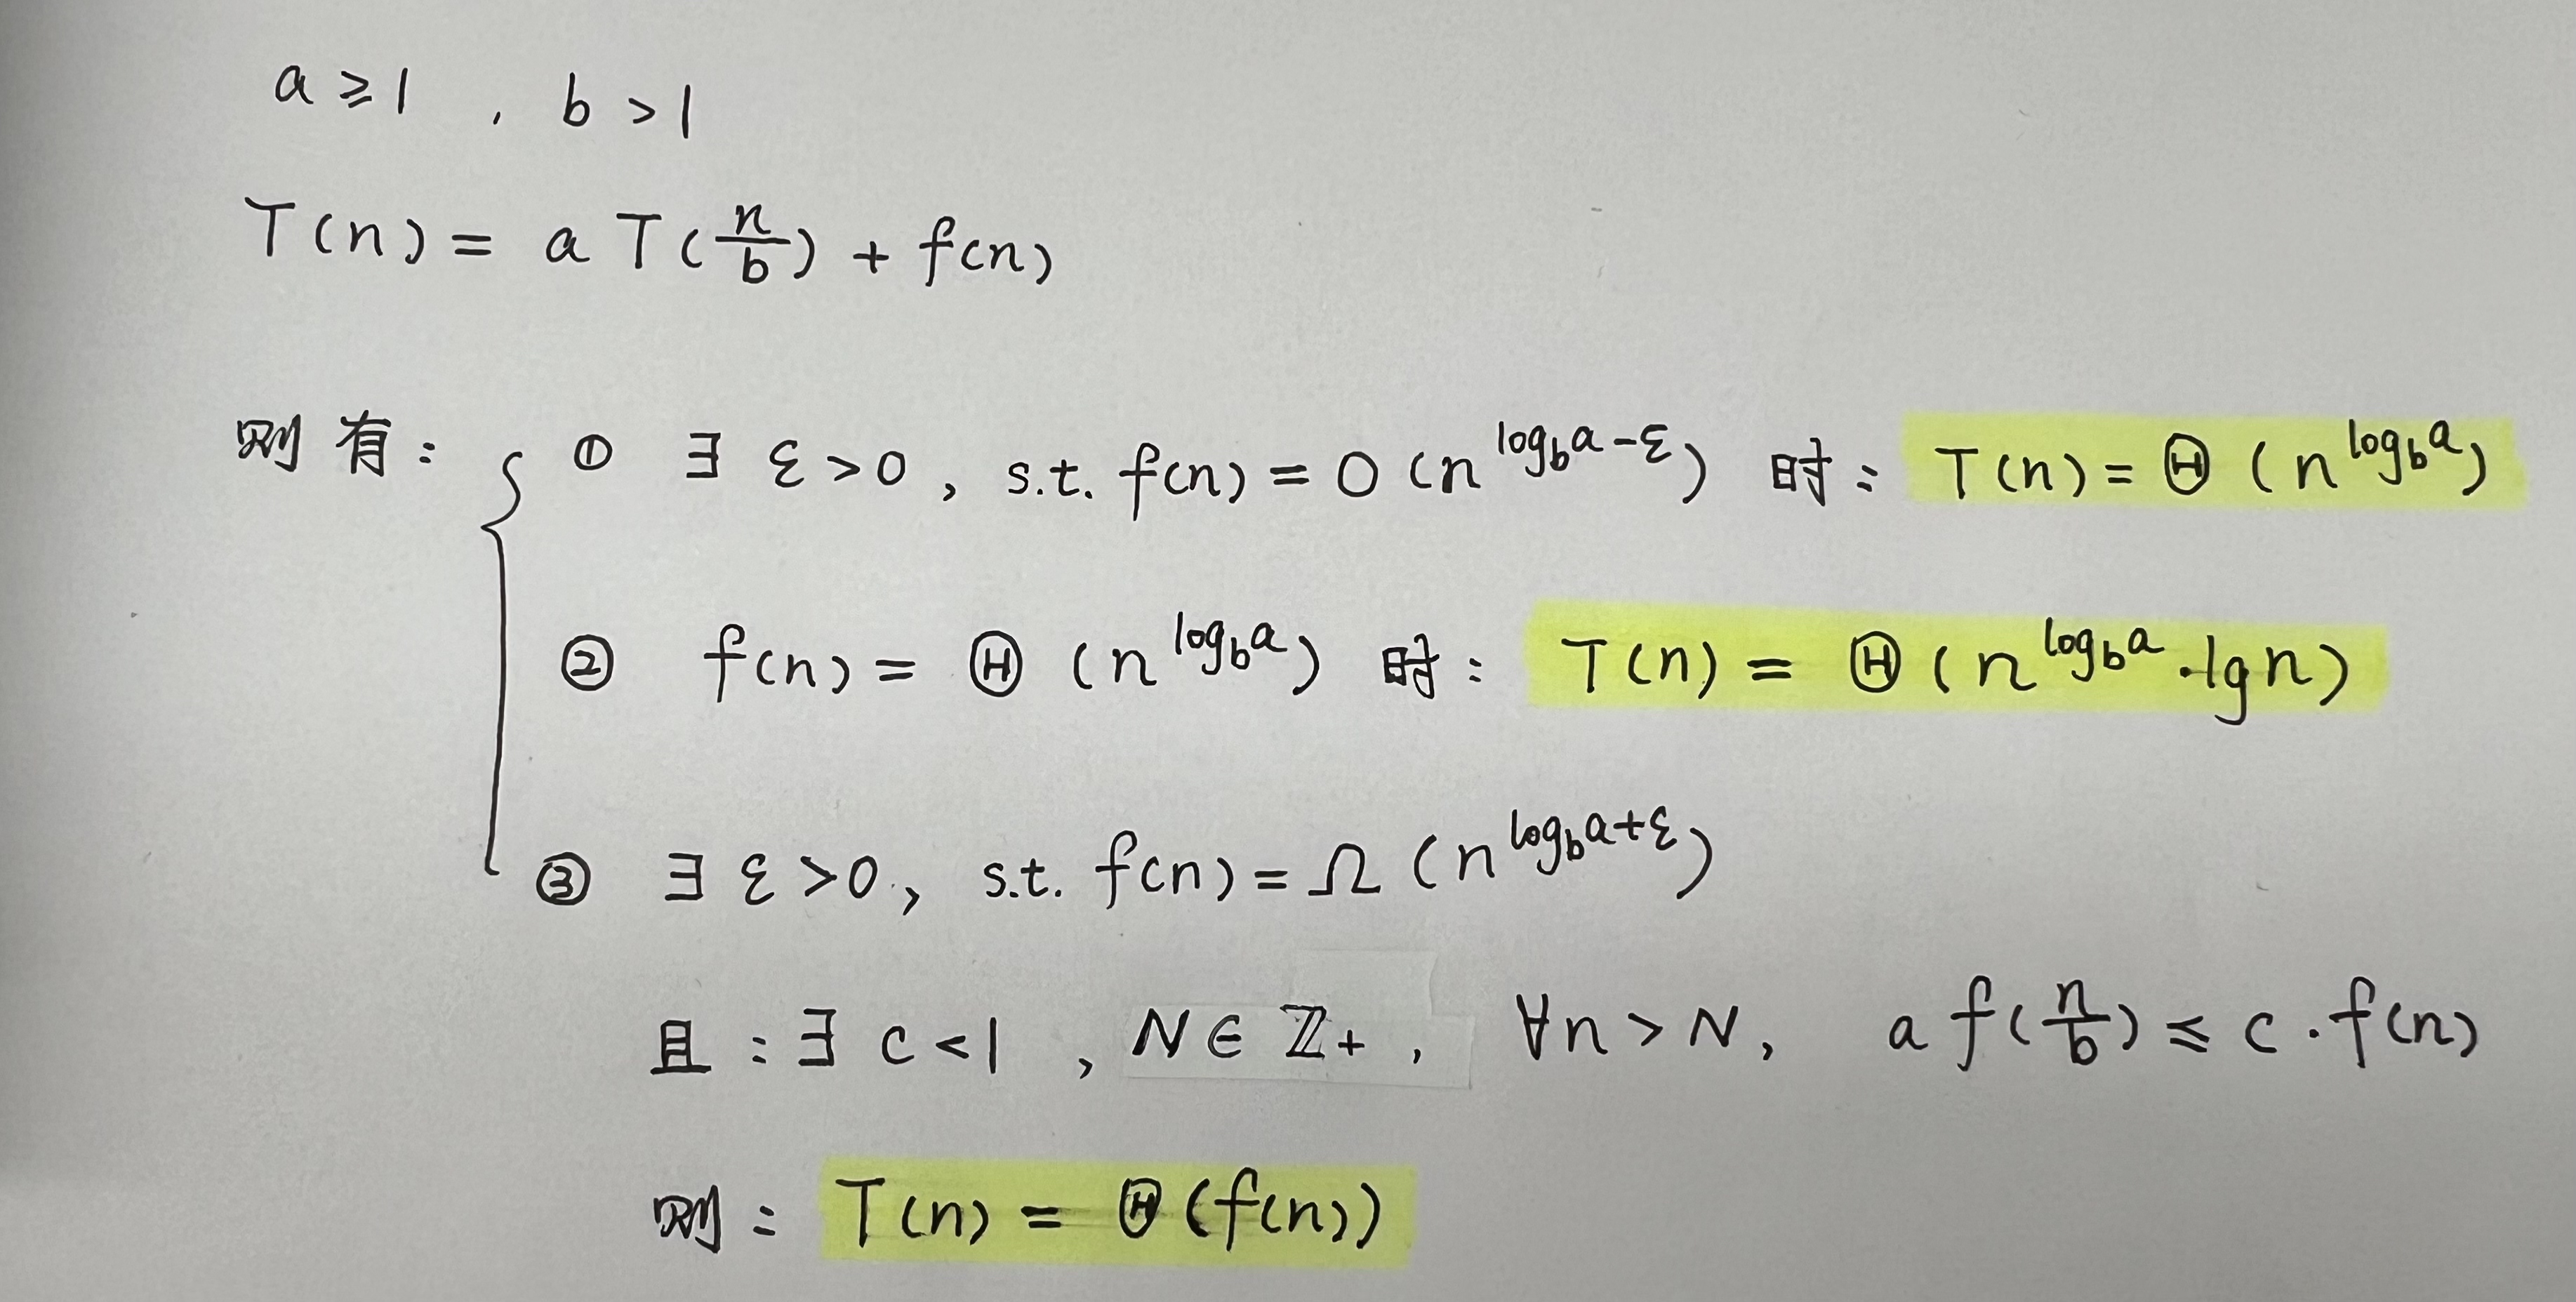 a ≥ 1 , b > 1
T(n) = a T(n/b) + f(n)
则有: { ① ∃ ε > 0 , s.t. f(n) = O (n^{log_b a - ε}) 时: T(n) = Θ (n^{log_b a})
② f(n) = Θ (n^{log_b a}) 时: T(n) = Θ (n^{log_b a} · lg n)
③ ∃ ε > 0 , s.t. f(n) = Ω (n^{log_b a + ε})
且: ∃ c < 1 , N ∈ ℤ+ , ∀n > N, a f(n/b) ≤ c · f(n)
则: T(n) = Θ (f(n))